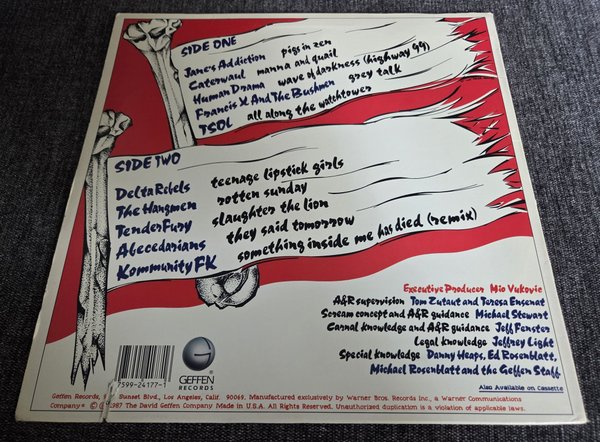 SIDE ONE
Jane's Addiction pigs in zen
Caterwaul manna and quail
Human Drama wave of darkness (highway 99)
Francis X And The Bushmen grey talk
TSOL all along the watchtower
SIDE TWO
Delta Rebels teenage lipstick girls
The Hangmen rotten sunday
TenderFury slaughter the lion
Abecedarians they said tomorrow
Kommunity FK something inside me has died (remix)
Executive Producer Mio Vukovic
A&R supervision Tom Zutaut and Teresa Ensenat
Scream concept and A&R guidance Michael Stewart
Carnal knowledge and A&R guidance Jeff Fenster
Legal knowledge Jeffrey Light
Special knowledge Danny Heaps, Ed Rosenblatt,
Michael Rosenblatt and the Geffen Staff
Also Available on Cassette
7599-24177-1
GEFFEN
RECORDS
Geffen Records, Sunset Blvd., Los Angeles, California 90069. Manufactured exclusively by Warner Bros. Records Inc., a Warner Communications
Company • 1987 The David Geffen Company Made in U.S.A. All Rights Reserved. Unauthorized duplication is a violation of applicable laws.